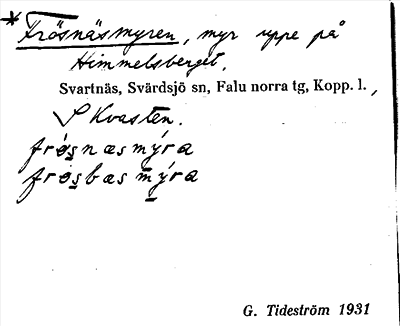 * Frösnäsmyren, myr uppe på
Himmelsberget,
Svartnäs, Svärdsjö sn, Falu norra tg, Kopp. l.,
S Kvasten.
frósnæsmýra
frósbæsmýra
G. Tideström 1931